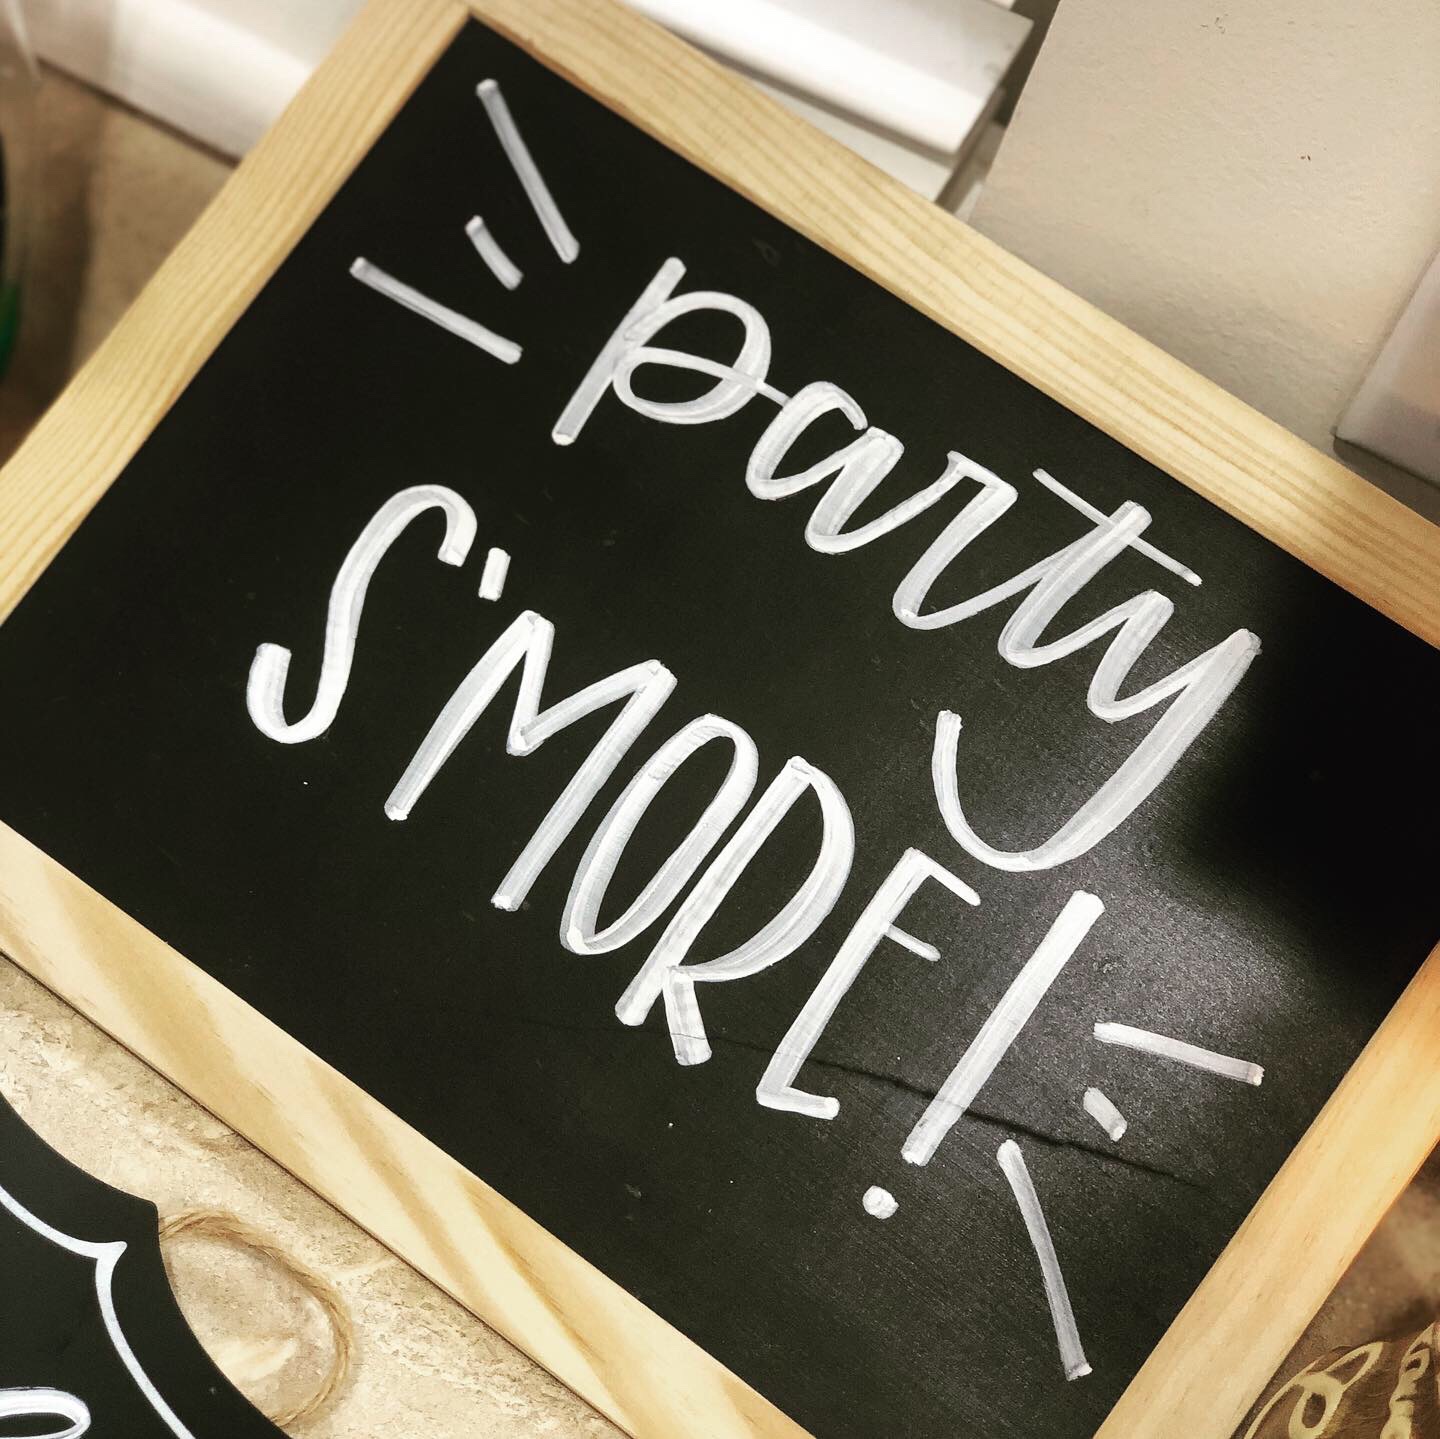 party
S'MORE!